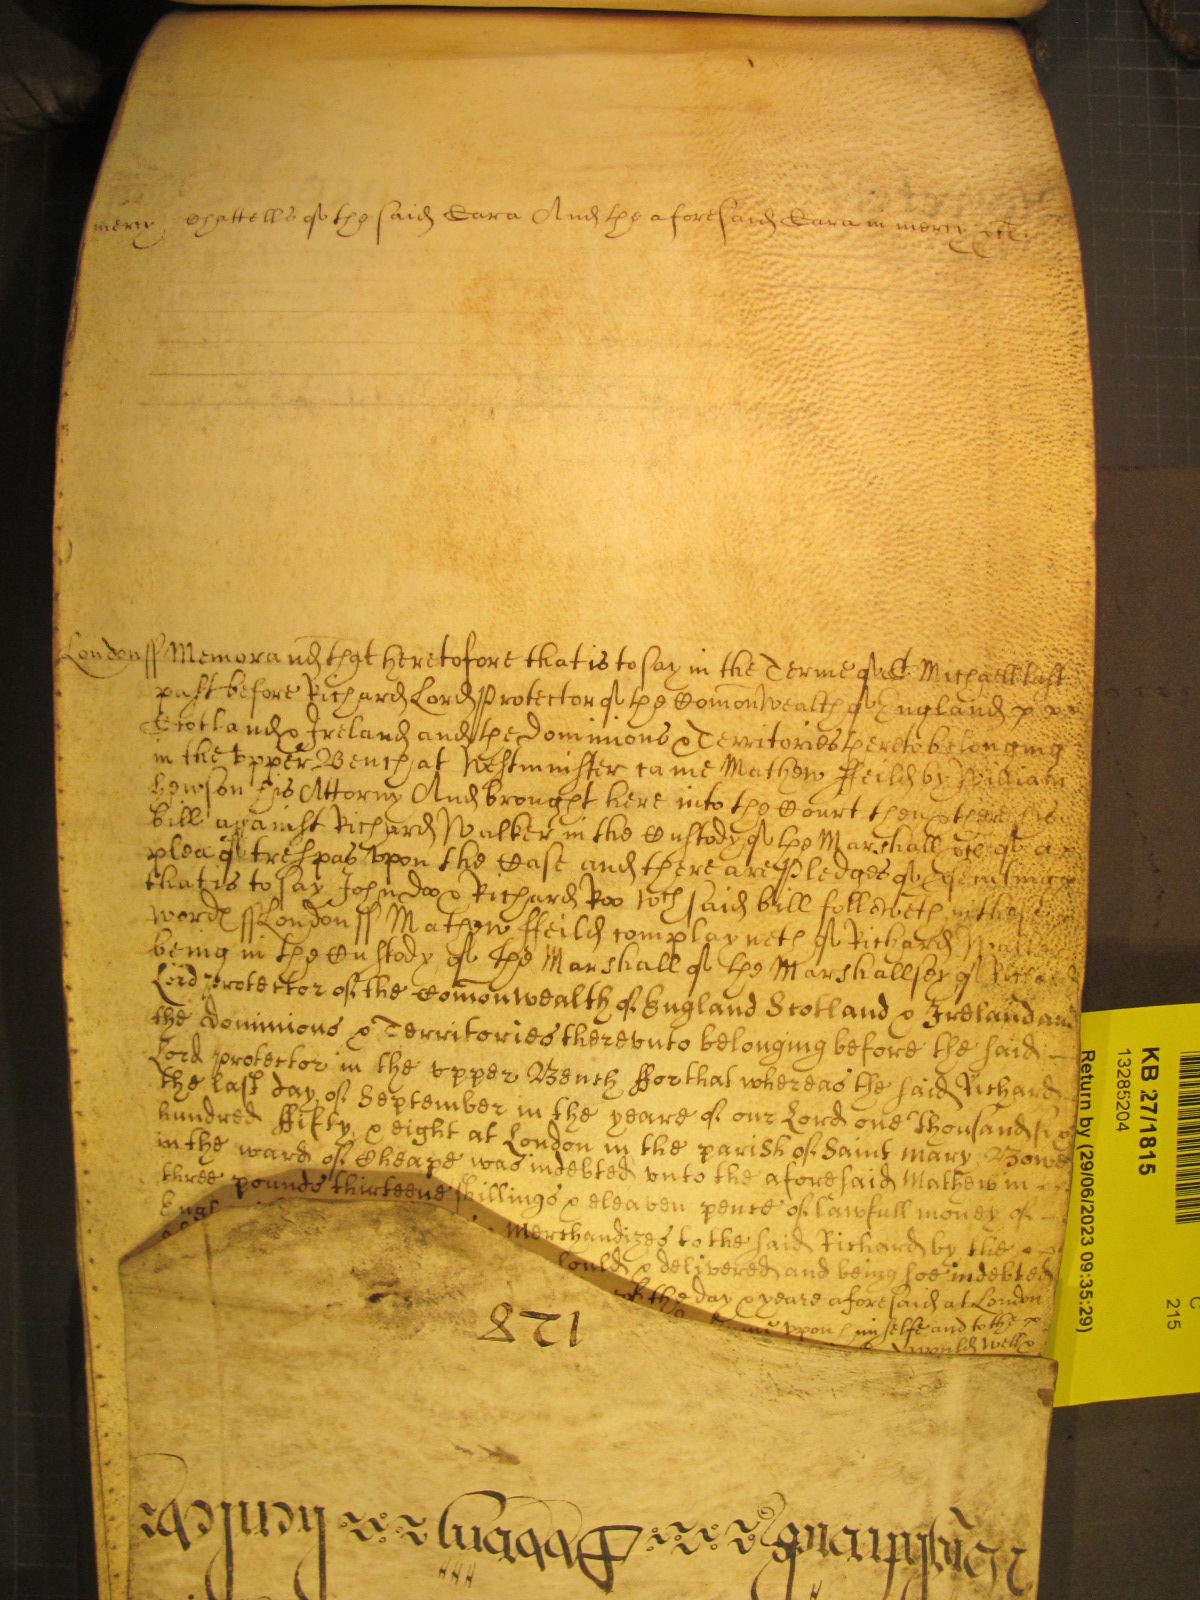 mercy Chattells of the said Sara And the aforesaid Sara in mercy etc.
London ss Memorand that heretofore that is to say in the Terme of St Michaell last
past before Richard Lord Protector of the Comonwealth of England
Scotland & Ireland and the Dominions & Territories thereto belonging
in the Upper Bench at Westminster came Mathew ffeild by William
his Attorny And brought here into the Court then & there his
bill against Richard Walker in the Custody of the Marshall etc of a
plea of trespas upon the Case and there are Pledges of
that is to say John Doo & Richard Roo wch said bill followeth in these
words ss London ss Mathew ffeild complayneth of Richard Walker
being in the Custody of the Marshall of the Marshallsey of Richard
Lord Protector of the Comonwealth of England Scotland & Ireland and
the Dominions & Territories thereunto belonging before the said
Lord Protector in the upper Bench ffor that whereas the said Richard
the last day of September in the yeare of our Lord one thousand six
hundred ffifty & eight at London in the parish of Saint Mary Bowe
in the ward of Cheape was indebted unto the aforesaid Mathew in
three pounds thirteene shillings & eleaven pence of lawfull money of
Engl
Merchandizes to the said Richard by the
sould & delivered and being soe indebted
the day & yeare aforesaid at London
upon himselfe and to the
would well &
128
KB 27/1815
13285204
Return by (29/06/2023 09:35:29)
C
215